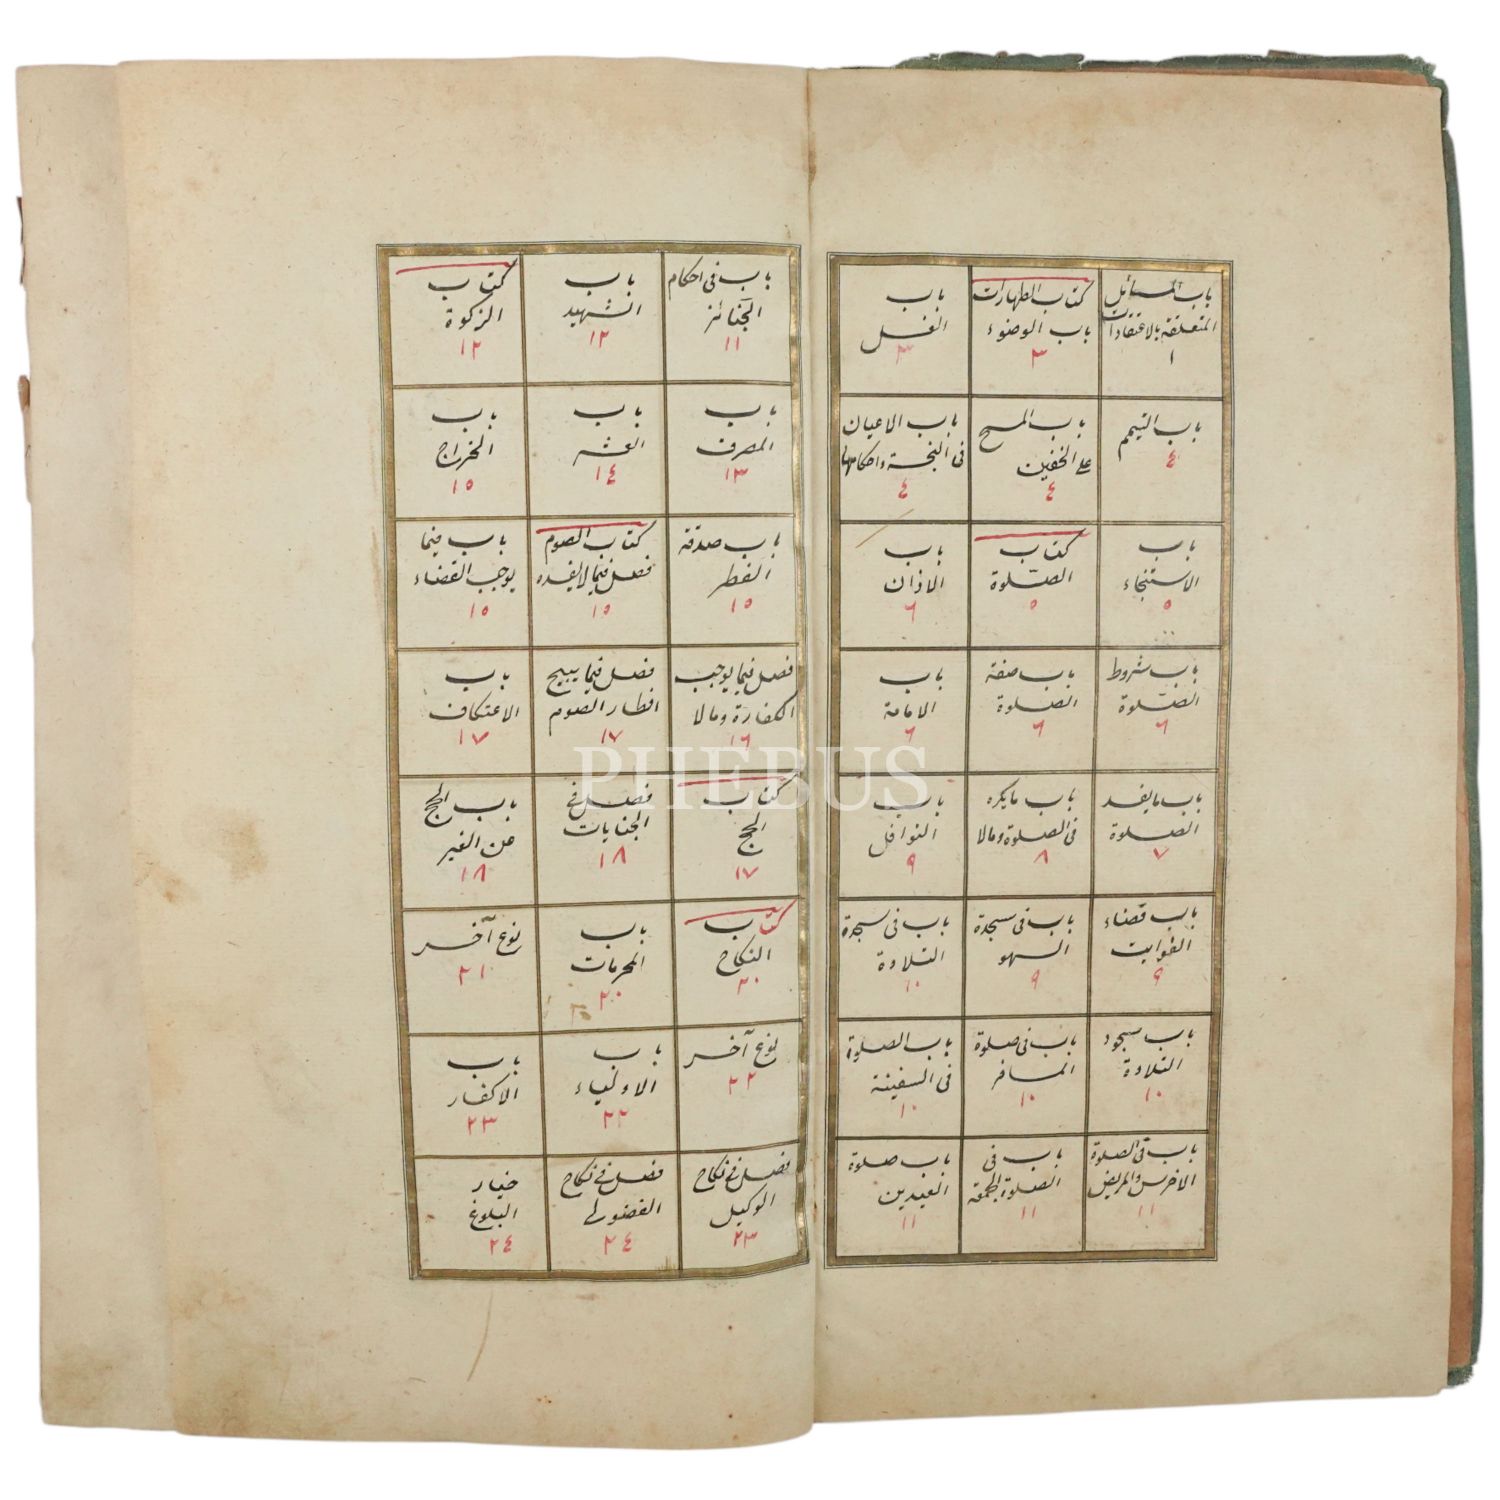 باب المسائل
المتعلقة بالاعتقادات
١
كتاب الطهارات
باب الوضوء
٣
باب
الغسل
٣
باب التيمم
٤
باب المسح
على الخفين
٤
باب الاعيان
فى النجسة واحكامها
٤
باب
الاستنجاء
٥
كتاب
الصّلوة
٥
باب
الاذان
٦
باب شروط
الصّلوة
٦
باب صفة
الصلوة
٦
باب
الامامة
٦
باب ما يفسد
الصلوة
٧
باب ما يكره
فى الصلوة وما لا
٨
باب
النوافل
٩
باب قضاء
الفوايت
٩
باب فى سجدة
السهو
٩
باب فى سجدة
التلاوة
١٠
باب سجود
التلاوة
١٠
باب فى صلوة
المسافر
١٠
باب الصلوة
فى السفينة
١٠
باب فى الصلوة
الاخرس والمريض
١١
باب فى
الصلوة الجمعة
١١
باب صلوة
العيدين
١١
باب فى احكام
الجنائز
١١
باب
الشهيد
١٢
كتاب
الزكوة
١٢
باب
المصرف
١٣
باب
العشر
١٤
باب
الخراج
١٥
باب صدقة
الفطر
١٥
كتاب الصوم
فصل فيما لا يفسده
١٥
باب فيما
يوجب القضاء
١٥
فصل فيما يوجب
الكفارة وما لا
١٦
فصل فيما يبيح
افطار الصوم
١٧
باب
الاعتكاف
١٧
كتاب
الحج
١٧
فصل فى
الجنايات
١٨
باب الحج
عن الغير
١٨
كتاب
النكاح
٢٠
باب
المحرمات
٢٠
نوع آخر
٢١
نوع آخر
٢٢
باب
الاولياء
٢٢
باب
الاكفار
٢٣
فصل فى نكاح
الوكيل
٢٣
فصل فى نكاح
الفضولى
٢٤
خيار
البلوغ
٢٤
PHEBUS